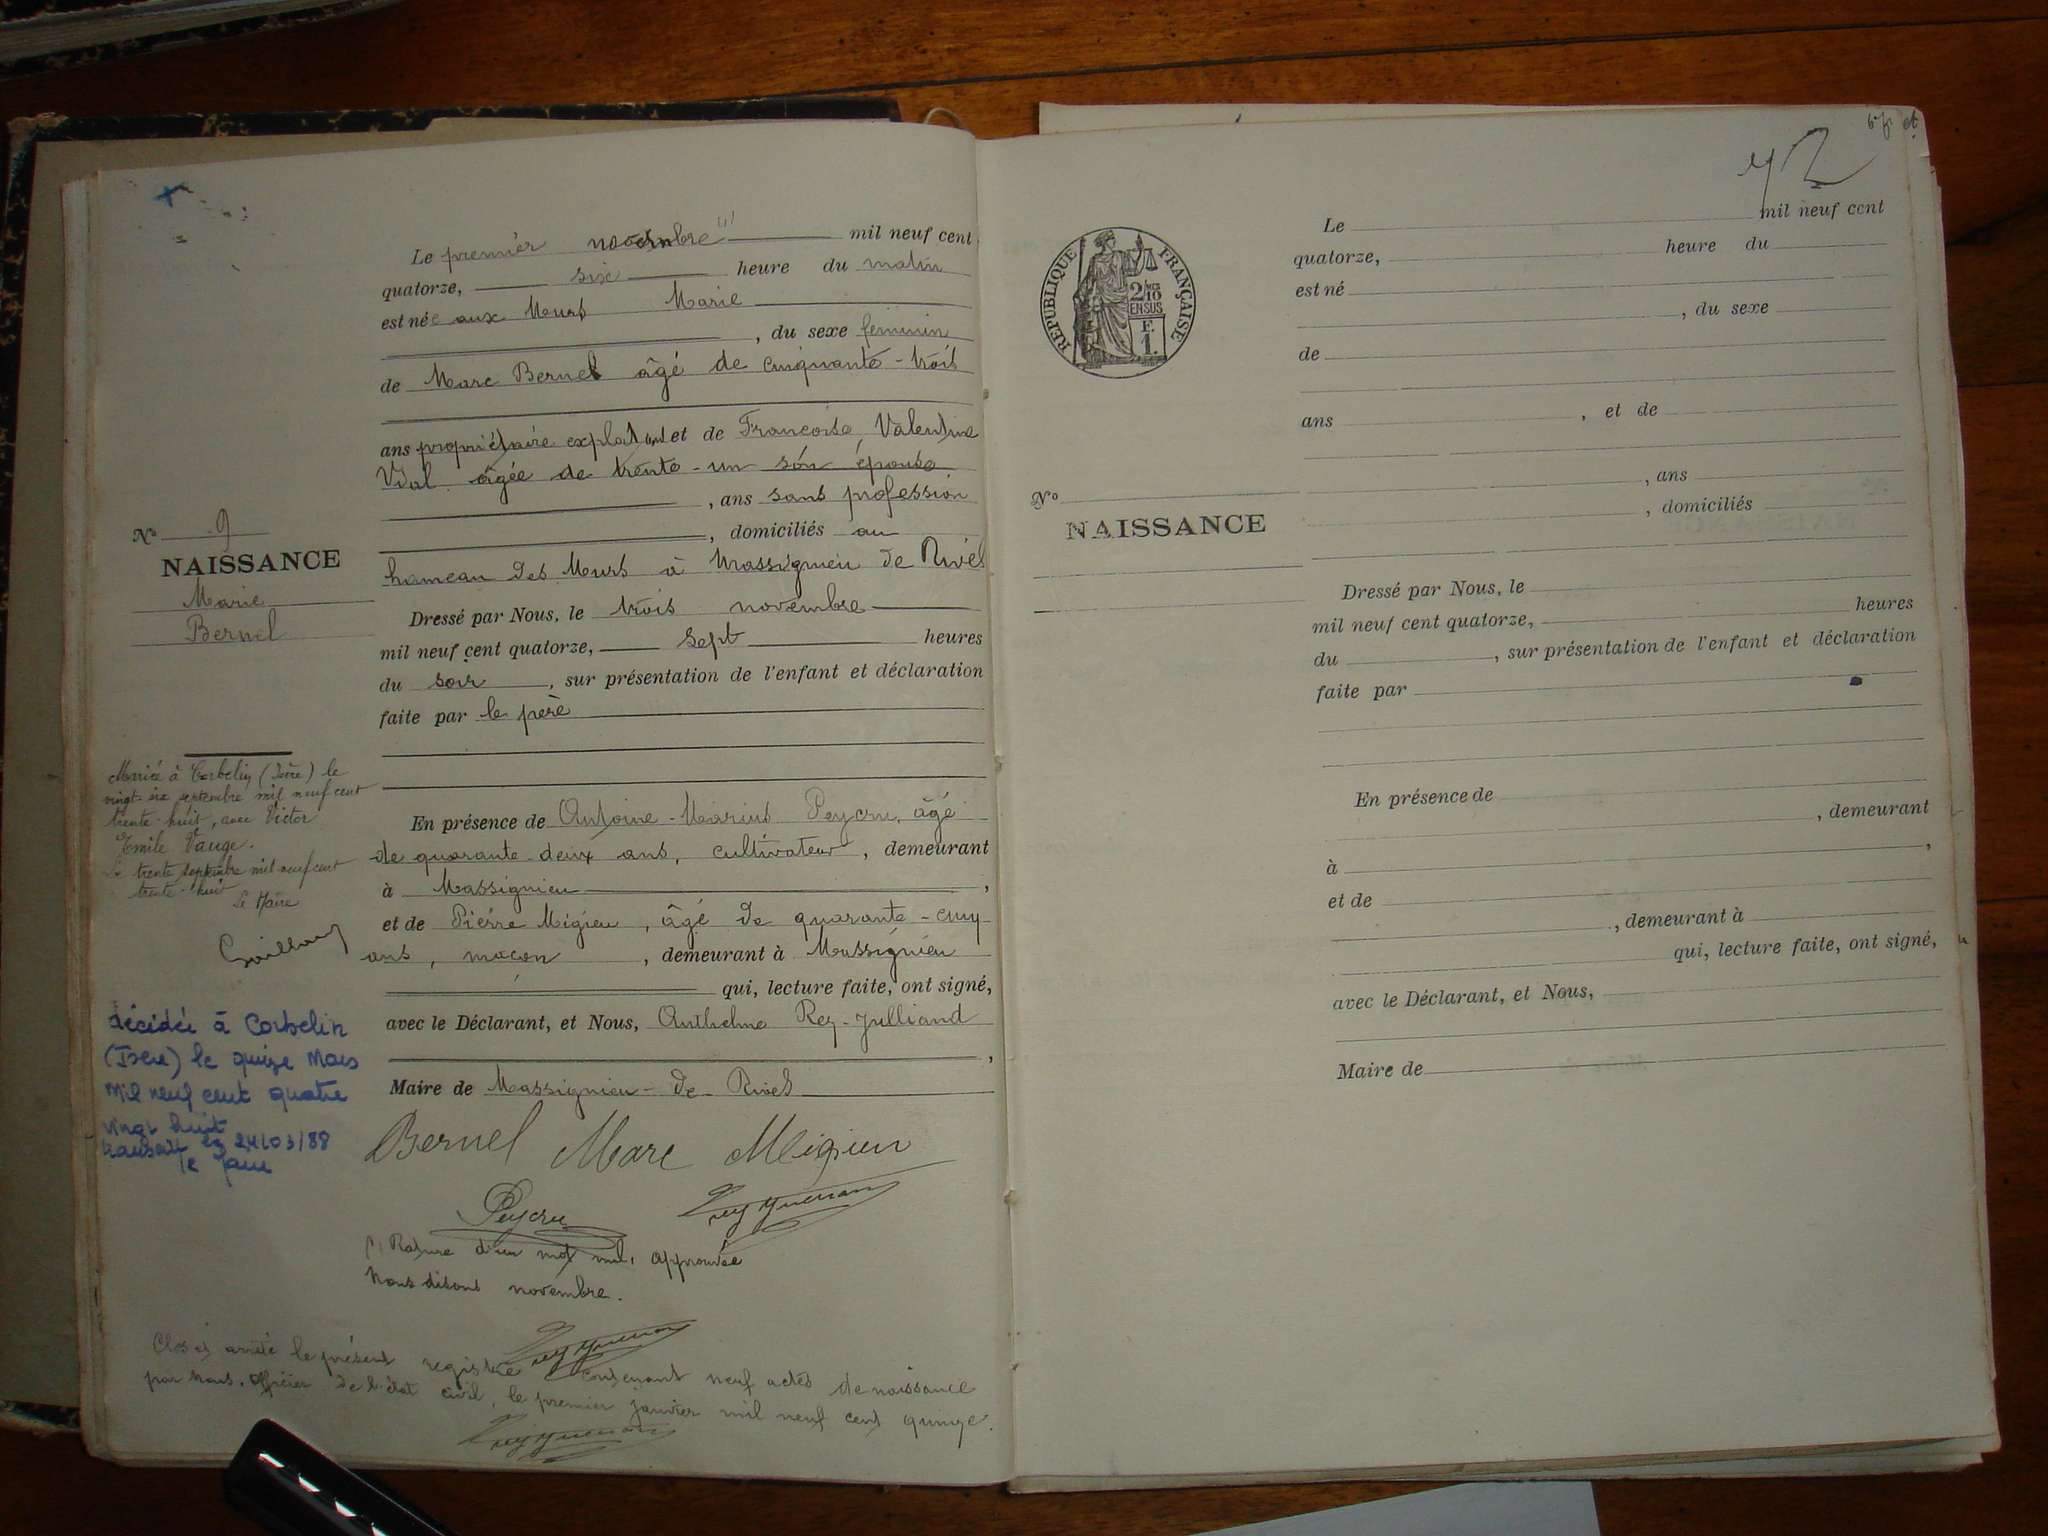 Le premier novembre mil neuf cent
quatorze, six heure du matin
est née aux Murs Marie
, du sexe féminin
de Marc Bernel âgé de cinquante-trois
ans propriétaire exploitant et de Francoise, Valentine
Vial âgée de trente-un son épouse
, ans sans profession
, domiciliés au
hameau des Murs à Massignieu de Rives
Dressé par Nous, le trois novembre
mil neuf cent quatorze, sept heures
du soir, sur présentation de l'enfant et déclaration
faite par le père
En présence de Antoine-Marius Peycru, âgé
de quarante-deux ans, cultivateur, demeurant
à Massignieu,
et de Pierre Migieu, âgé de quarante-cinq
ans, macon, demeurant à Massignieu
qui, lecture faite, ont signé,
avec le Déclarant, et Nous, Anthelme Rey-Julliand
,
Maire de Massignieu-de-Rives
Bernel Marc Migieu
Peycru
Rature d'un mot nul, approuvée
Nous disons novembre.
Clos et arrêté le présent registre contenant neuf actes de naissance
par Nous, Officier de l'état civil, le premier janvier mil neuf cent quinze.
N° 9
NAISSANCE
Marie
Bernel
Mariée à Corbelin (Isère) le
vingt-six septembre mil neuf cent
trente-huit, avec Victor
Emile Vauge.
Le trente septembre mil neuf cent
trente-huit
Le Maire
décédée à Corbelin
(Isère) le quize Mars
mil neuf cent quatre
vingt huit
le 24/03/88
le Maire
42
REPUBLIQUE FRANÇAISE
2/10
EN SUS
F.
1.
N°
NAISSANCE
Le mil neuf cent
quatorze, heure du
est né
, du sexe
de
ans , et de
, ans
, domiciliés
Dressé par Nous, le
mil neuf cent quatorze, heures
du , sur présentation de l'enfant et déclaration
faite par
En présence de
, demeurant
à ,
et de
, demeurant à
qui, lecture faite, ont signé,
avec le Déclarant, et Nous,
Maire de